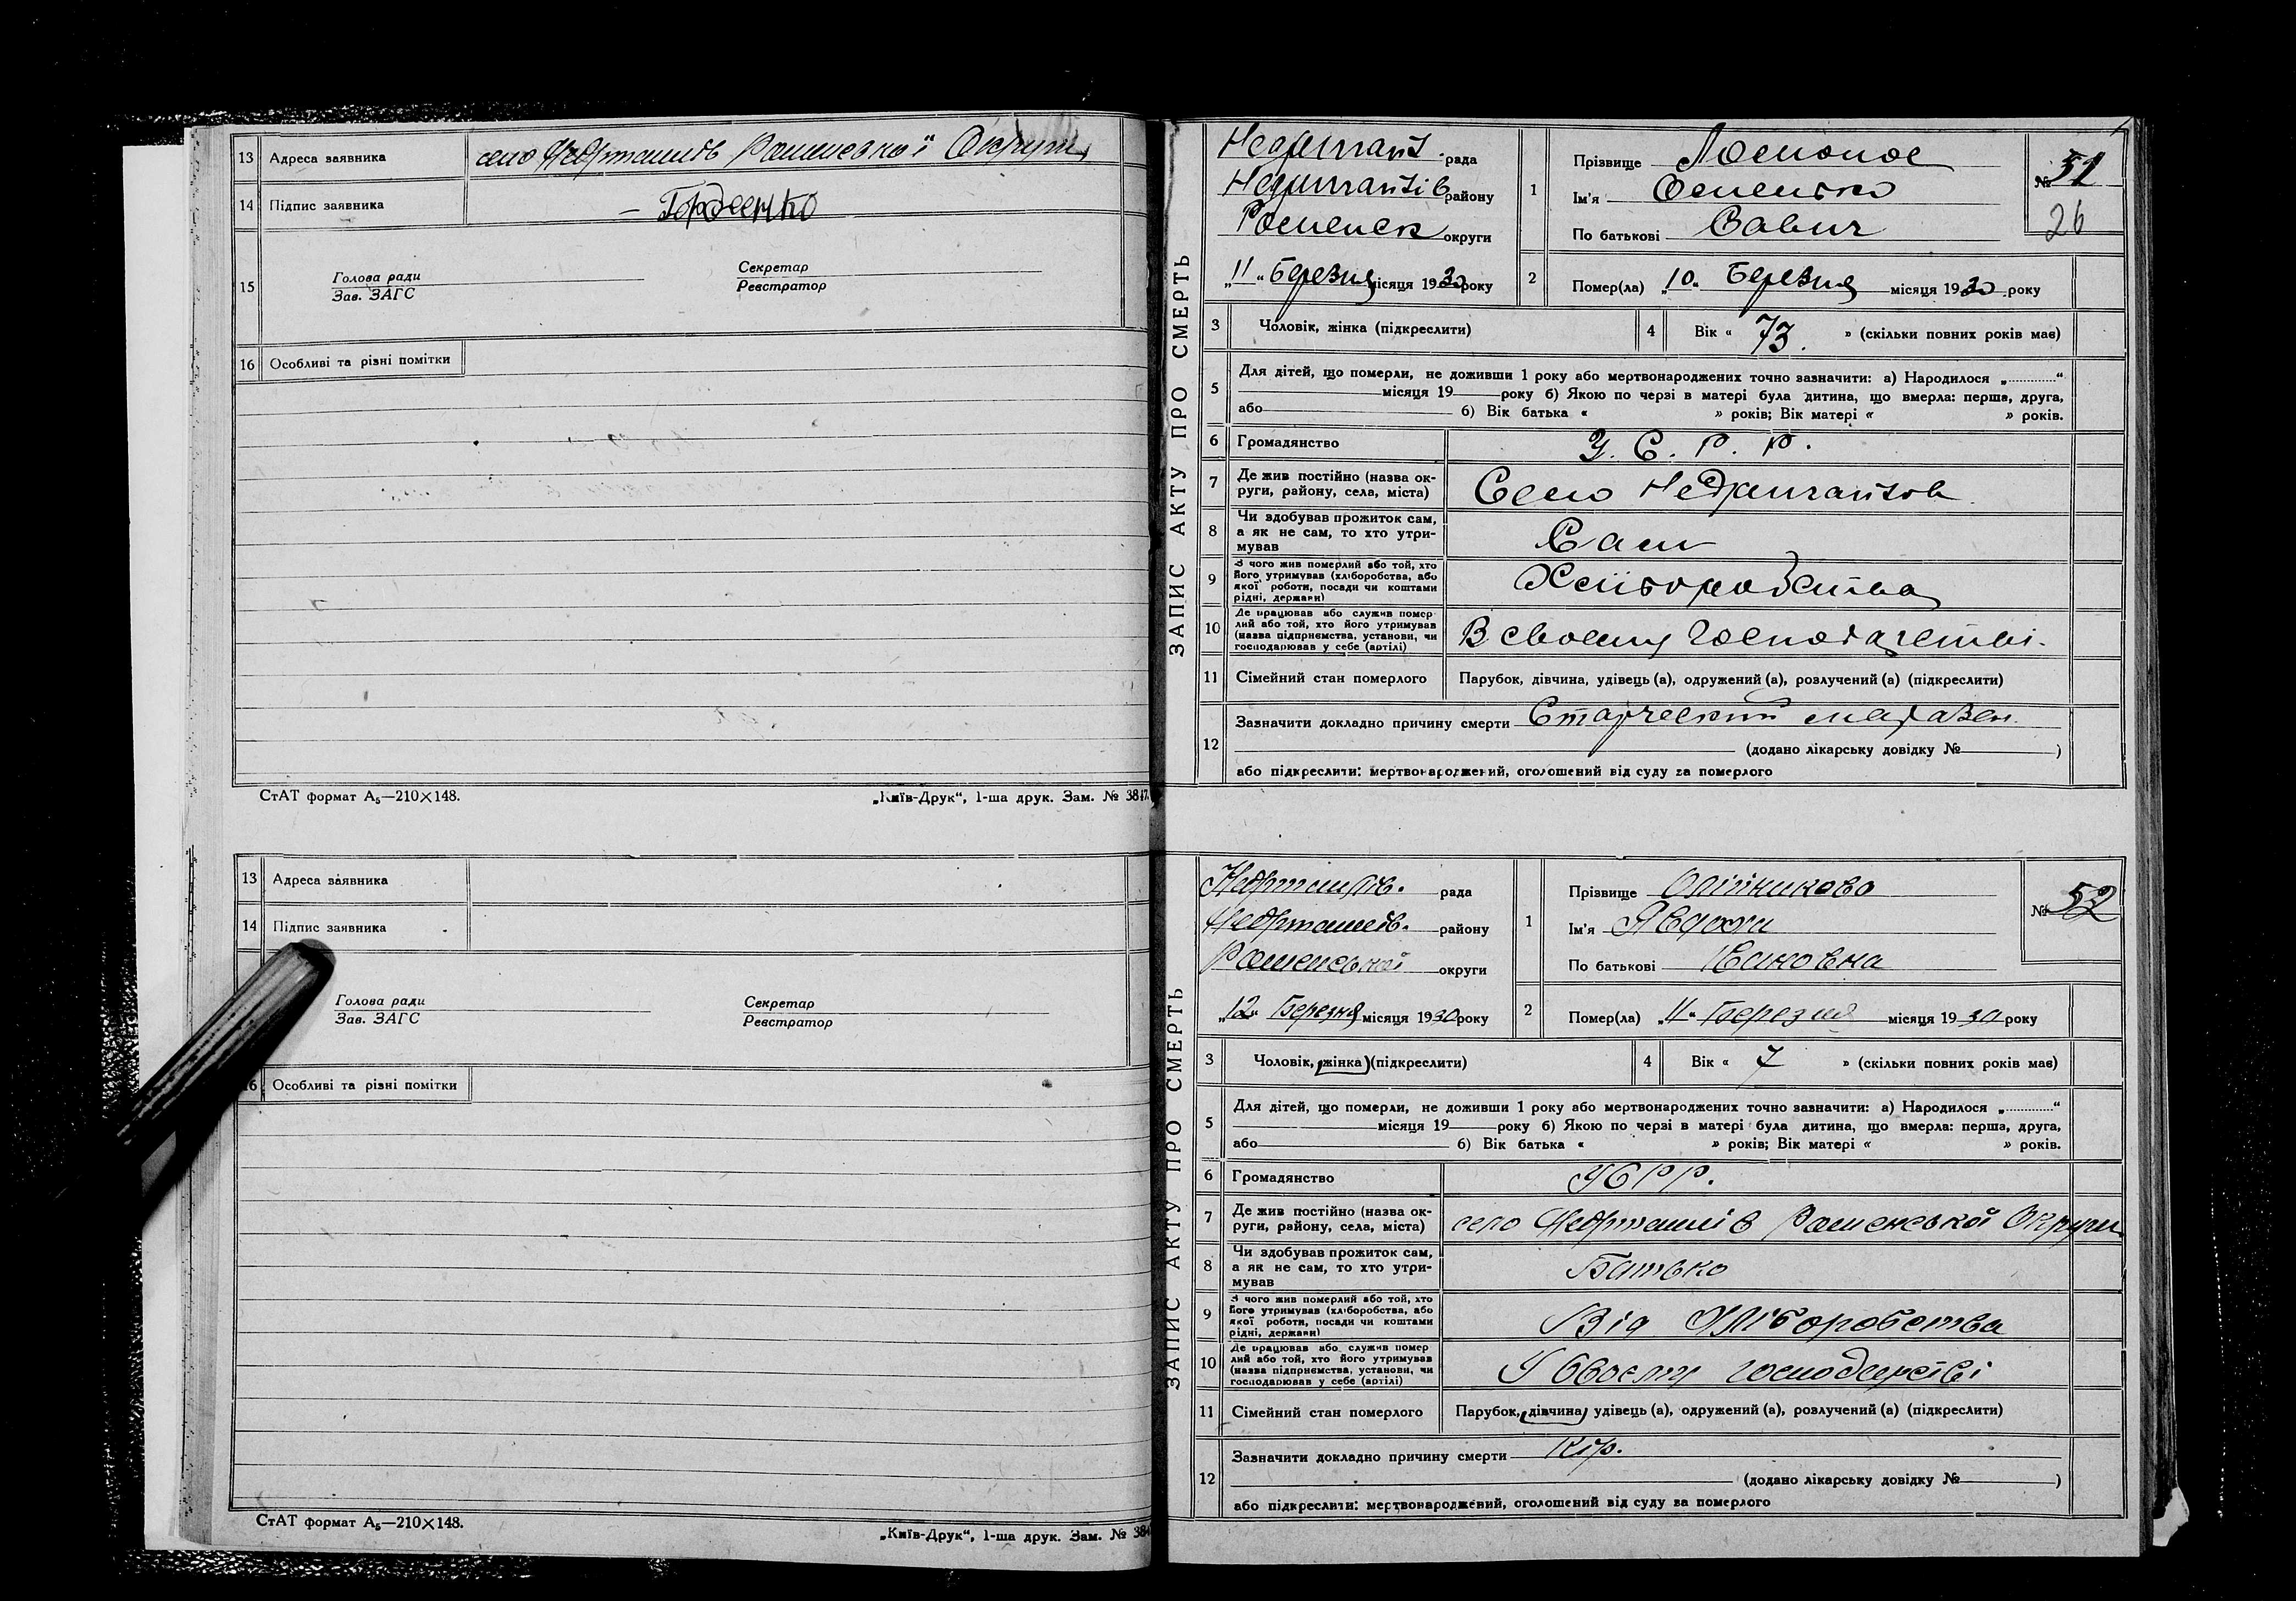 13 Адреса заявника село Недригайлів Роменської Округи
14 Підпис заявника – Гордєєнко
15 Голова ради
Зав. ЗАГС
Секретар
Реєстратор
16 Особливі та різні помітки
СтАТ формат А₅—210×148.
„Київ-Друк“, 1-ша друк. Зам. № 3847.
13 Адреса заявника
14 Підпис заявника
Голова ради
Зав. ЗАГС
Секретар
Реєстратор
16 Особливі та різні помітки
СтАТ формат А₅—210×148.
„Київ-Друк“, 1-ша друк. Зам. № 384
ЗАПИС АКТУ ПРО СМЕРТЬ
рада
району
Роменск округи
„11“ Березня місяця 1930 року
1 Прізвище
Ім'я
По батькові Савич
№ 51
26
2 Помер(ла) „10“ Березня місяця 1930 року
3 Чоловік, жінка (підкреслити)
4 Вік « 73. » (скільки повних років мав)
5 Для дітей, що померли, не доживши 1 року або мертвонароджених точно зазначити: а) Народилося „............“
місяця 19 року б) Якою по черзі в матері була дитина, що вмерла: перша, друга,
або б) Вік батька « » років; Вік матері « » років.
6 Громадянство У. С. Р. Р.
7 Де жив постійно (назва ок-
руги, району, села, міста) Село
8 Чи здобував прожиток сам,
а як не сам, то хто утри-
мував Сам
9 З чого жив померлий або той, хто
його утримував (хліборобства, або
якої роботи, посади чи коштами
рідні, держави) Хліборобства
10 Де працював або служив помер
лий або той, хто його утримував
(назва підприємства, установи, чи
господарював у себе (артілі) В своему господарстві.
11 Сімейний стан померлого Парубок, дівчина, удівець (а), одружений (а), розлучений (а) (підкреслити)
12 Зазначити докладно причину смерти Старческий маразм
(додано лікарську довідку № )
або підкреслити: мертвонароджений, оголошений від суду за померлого
ЗАПИС АКТУ ПРО СМЕРТЬ
Недригайлів. рада
Недригайлів. району
Роменської округи
„12“ Березня місяця 1930 року
1 Прізвище Олійникова
Ім'я Явдоха
По батькові Івановна
№ 52
2 Помер(ла) „11“ Березня місяця 1930 року
3 Чоловік, жінка (підкреслити)
4 Вік « 7 » (скільки повних років мав)
5 Для дітей, що померли, не доживши 1 року або мертвонароджених точно зазначити: а) Народилося „............“
місяця 19 року б) Якою по черзі в матері була дитина, що вмерла: перша, друга,
або б) Вік батька « » років; Вік матері « » років.
6 Громадянство УСРР.
7 Де жив постійно (назва ок-
руги, району, села, міста) село Недригайлів Роменської Округи
8 Чи здобував прожиток сам,
а як не сам, то хто утри-
мував Батько
9 З чого жив померлий або той, хто
його утримував (хліборобства, або
якої роботи, посади чи коштами
рідні, держави) Від Хліборобства
10 Де працював або служив помер
лий або той, хто його утримував
(назва підприємства, установи, чи
господарював у себе (артілі) У своєму господарстві
11 Сімейний стан померлого Парубок, дівчина, удівець (а), одружений (а), розлучений (а) (підкреслити)
12 Зазначити докладно причину смерти Кір.
(додано лікарську довідку № )
або підкреслити: мертвонароджений, оголошений від суду за померлого